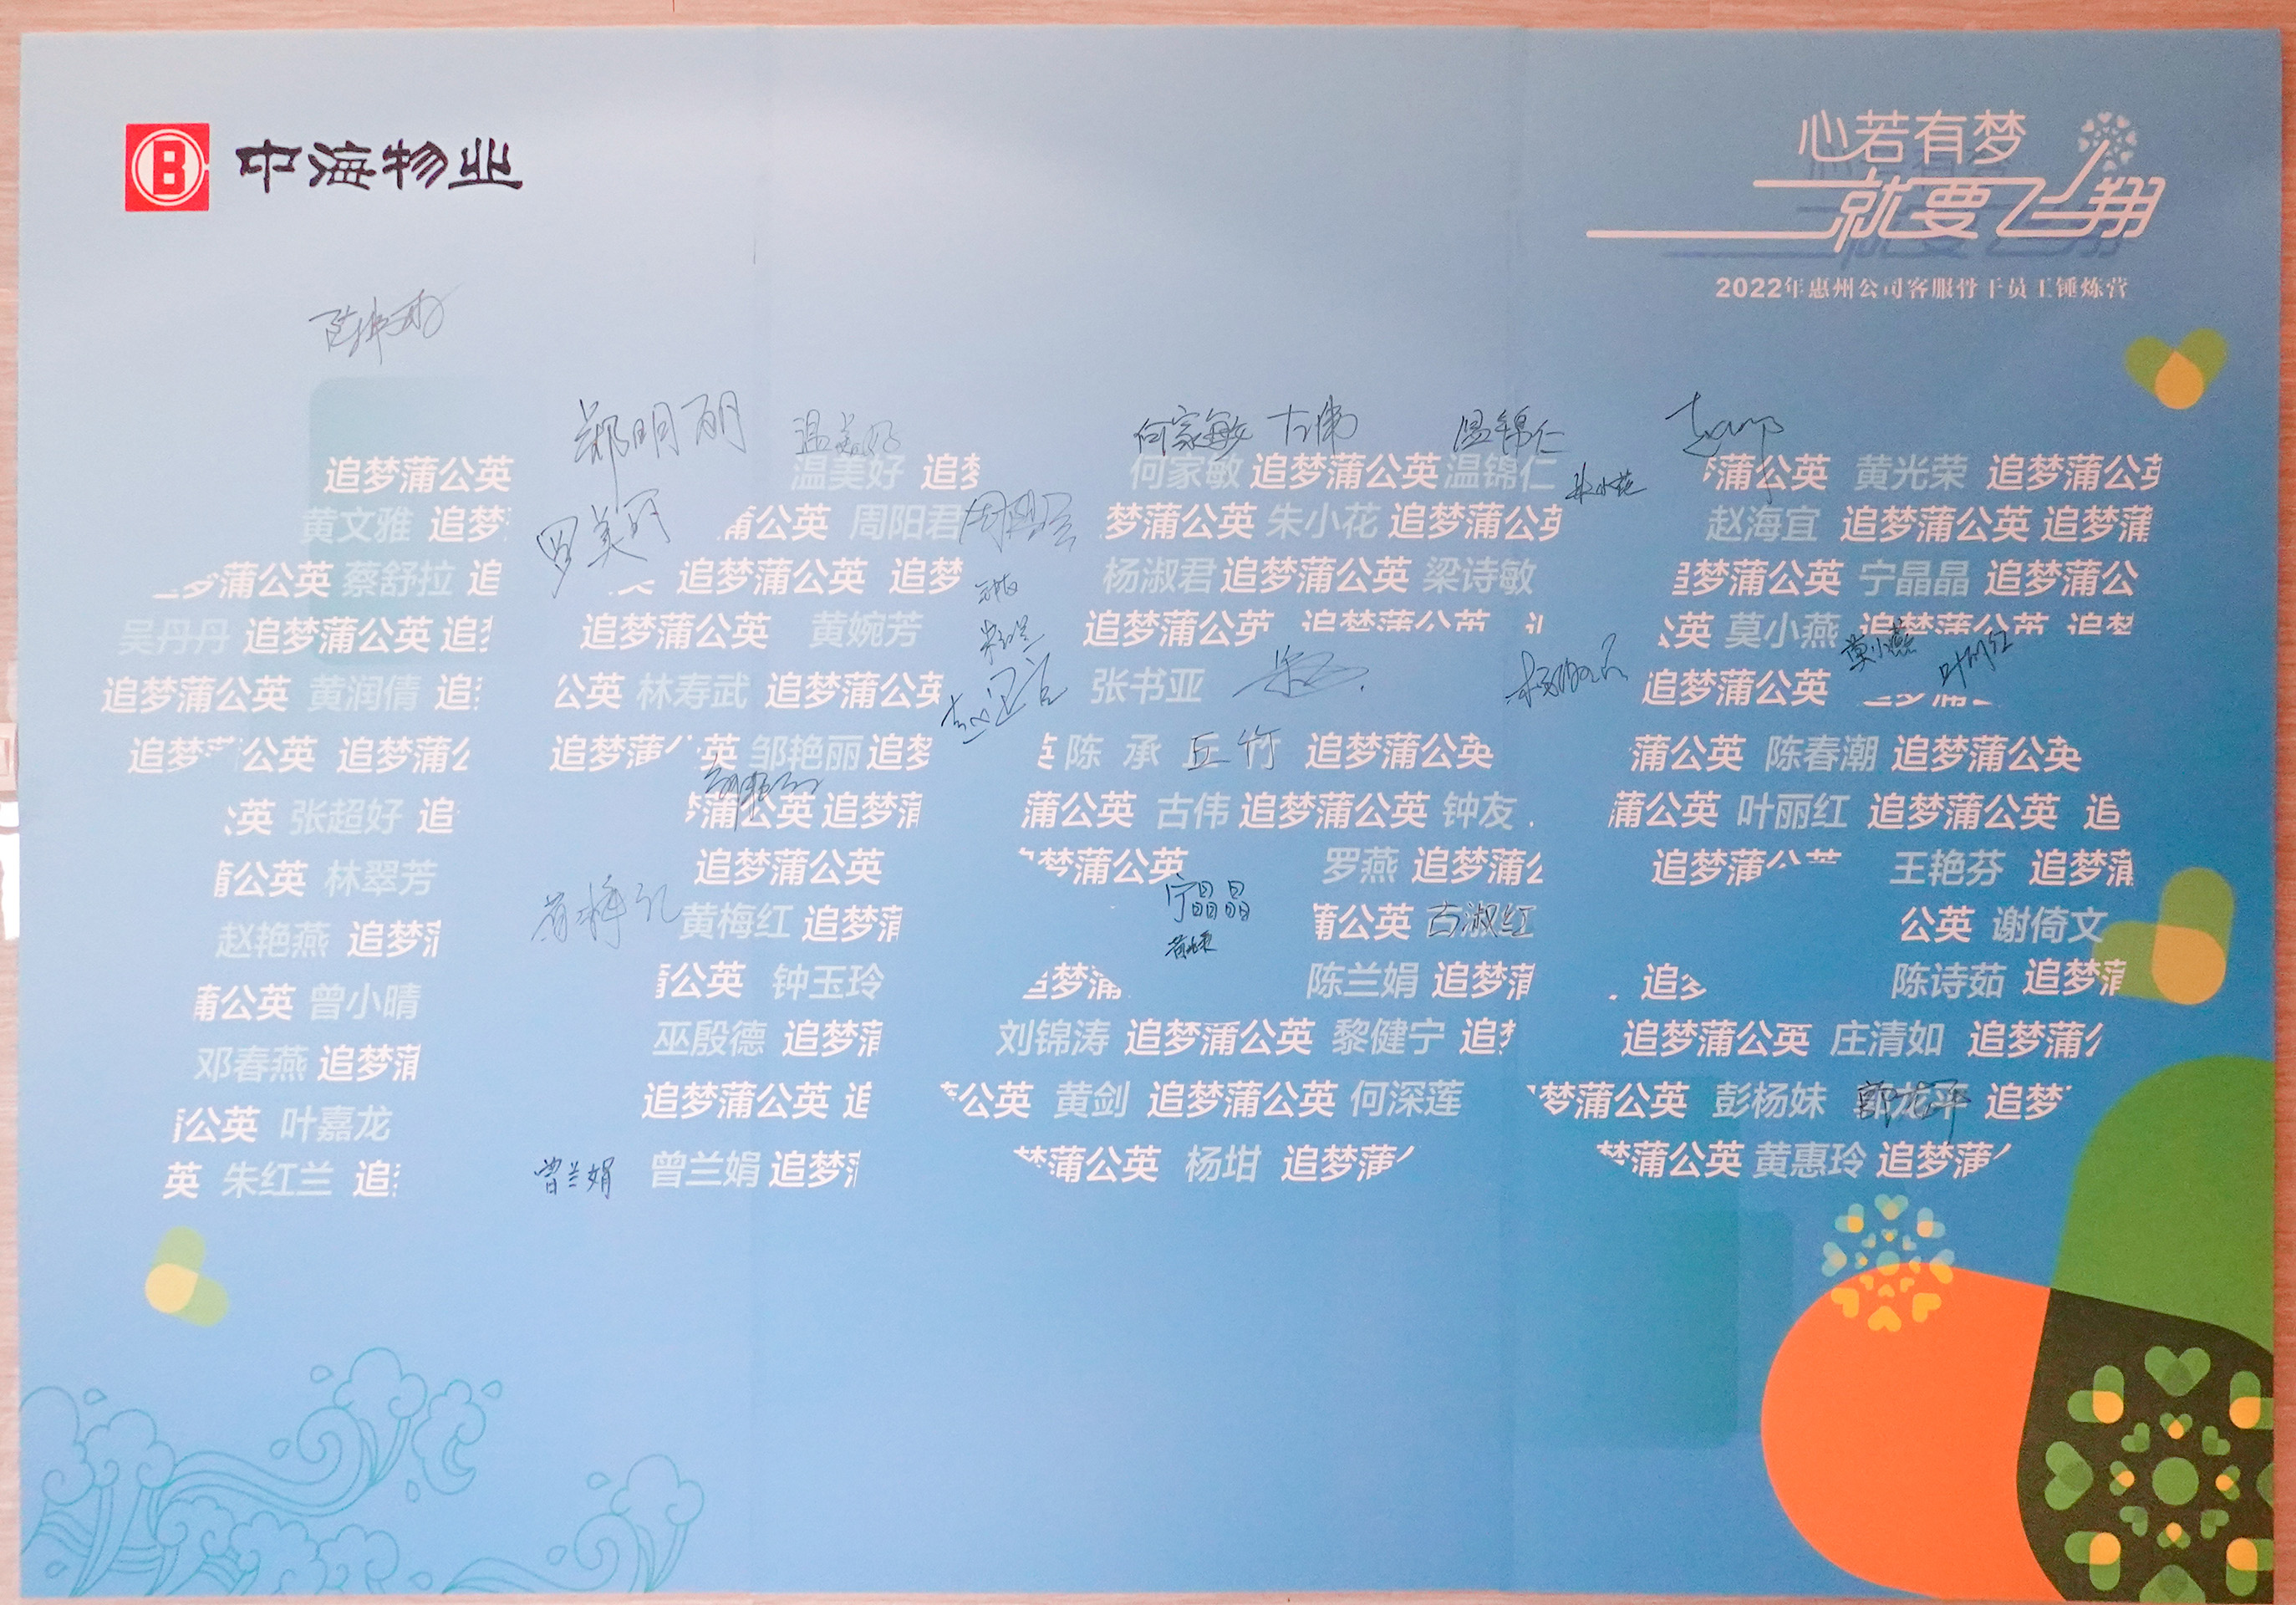 中海物业
心若有梦
就要飞翔
2022年惠州公司客服骨干员工锤炼营
郑明丽 温美好 何家敏 古伟 温锦仁
追梦蒲公英 温美好 追梦 何家敏 追梦蒲公英 温锦仁 蒲公英 黄光荣 追梦蒲公英
朱小花
黄文雅 追梦 罗美丽 蒲公英 周阳君 梦蒲公英 朱小花 追梦蒲公英 赵海宜 追梦蒲公英 追梦蒲
梦蒲公英 蔡舒拉 追 追梦蒲公英 追梦 杨淑君 追梦蒲公英 梁诗敏 追梦蒲公英 宁晶晶 追梦蒲公
吴丹丹 追梦蒲公英 追 追梦蒲公英 黄婉芳 追梦蒲公英 追梦蒲公英 公英 莫小燕 追梦蒲公英 追梦
莫小燕 叶丽红
追梦蒲公英 黄润倩 追 公英 林寿武 追梦蒲公英 张书亚 追梦蒲公英
追梦蒲 公英 追梦蒲公 追梦蒲公英 邹艳丽 追梦 英 陈 承 丘 竹 追梦蒲公英 蒲公英 陈春潮 追梦蒲公英
公英 张超好 追 梦蒲公英 追梦蒲 蒲公英 古伟 追梦蒲公英 钟友 蒲公英 叶丽红 追梦蒲公英 追
蒲公英 林翠芳 追梦蒲公英 梦蒲公英 罗燕 追梦蒲公 追梦蒲公英 王艳芬 追梦蒲
宁晶晶
赵艳燕 追梦蒲 黄梅红 黄梅红 追梦蒲 蒲公英 古淑红 公英 谢倚文
蒲公英 曾小晴 蒲公英 钟玉玲 追梦蒲 陈兰娟 追梦蒲 追梦 陈诗茹 追梦蒲
邓春燕 追梦蒲 巫殷德 追梦蒲 刘锦涛 追梦蒲公英 黎健宁 追梦 追梦蒲公英 庄清如 追梦蒲公
蒲公英 叶嘉龙 追梦蒲公英 追 蒲公英 黄剑 追梦蒲公英 何深莲 梦蒲公英 彭杨妹 郭龙平 追梦
英 朱红兰 追 曾兰娟 曾兰娟 追梦蒲 梦蒲公英 杨坩 追梦蒲公 梦蒲公英 黄惠玲 追梦蒲公